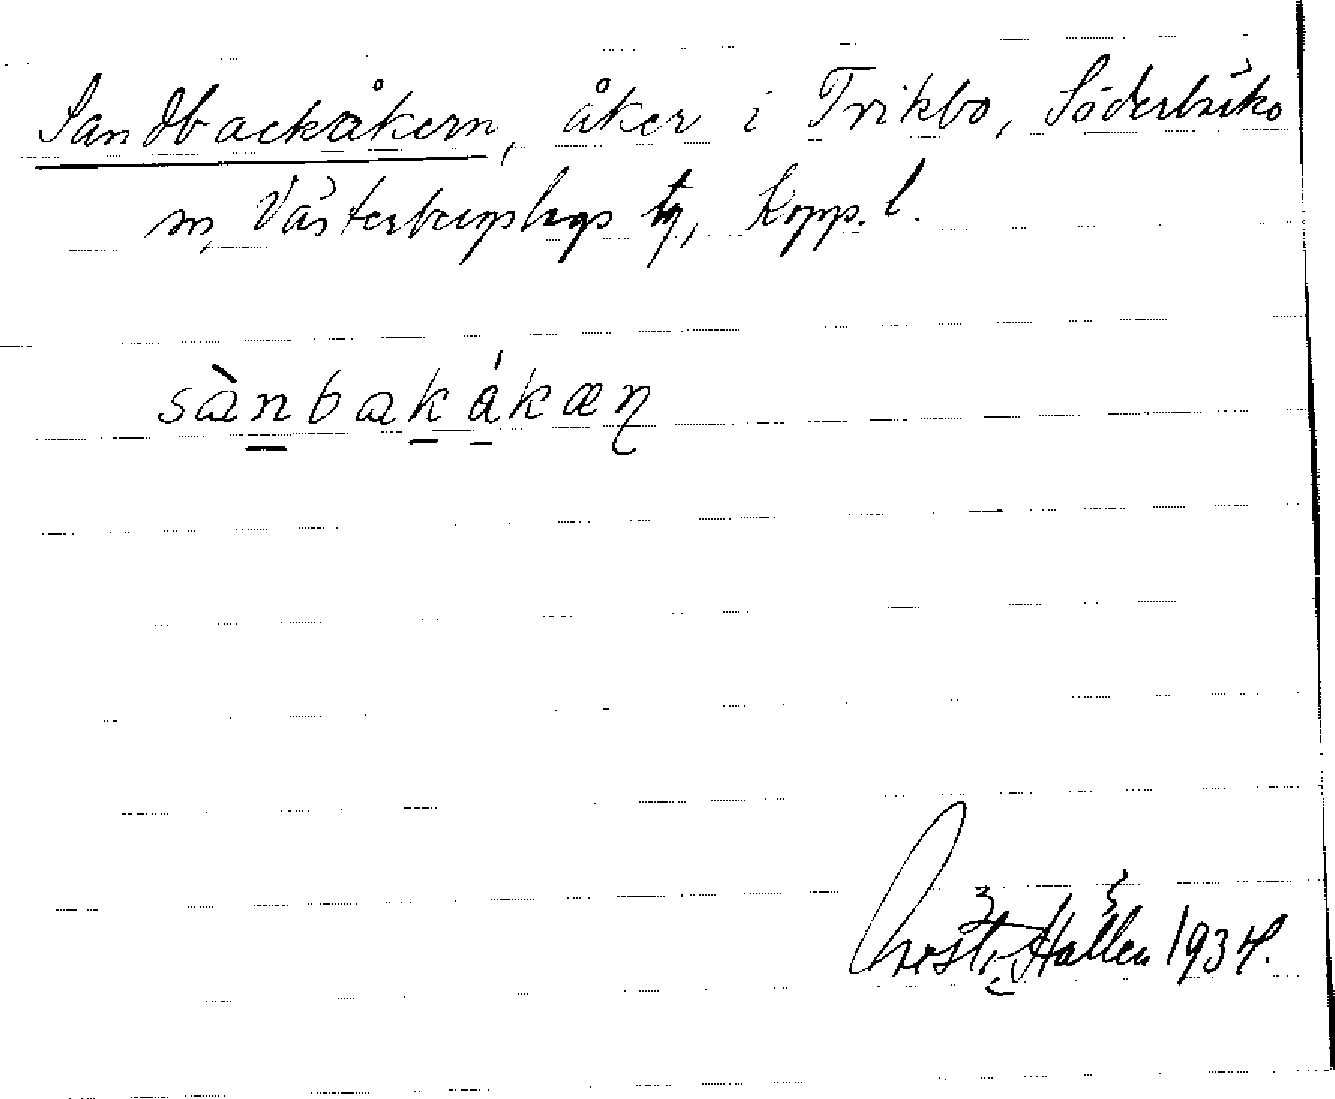 Sandbackåkern, åker i Trikbo, Söderbärke
sn, Västerbergslags tg, Kopp. l.
sànbakákæn
Hållén 1934.